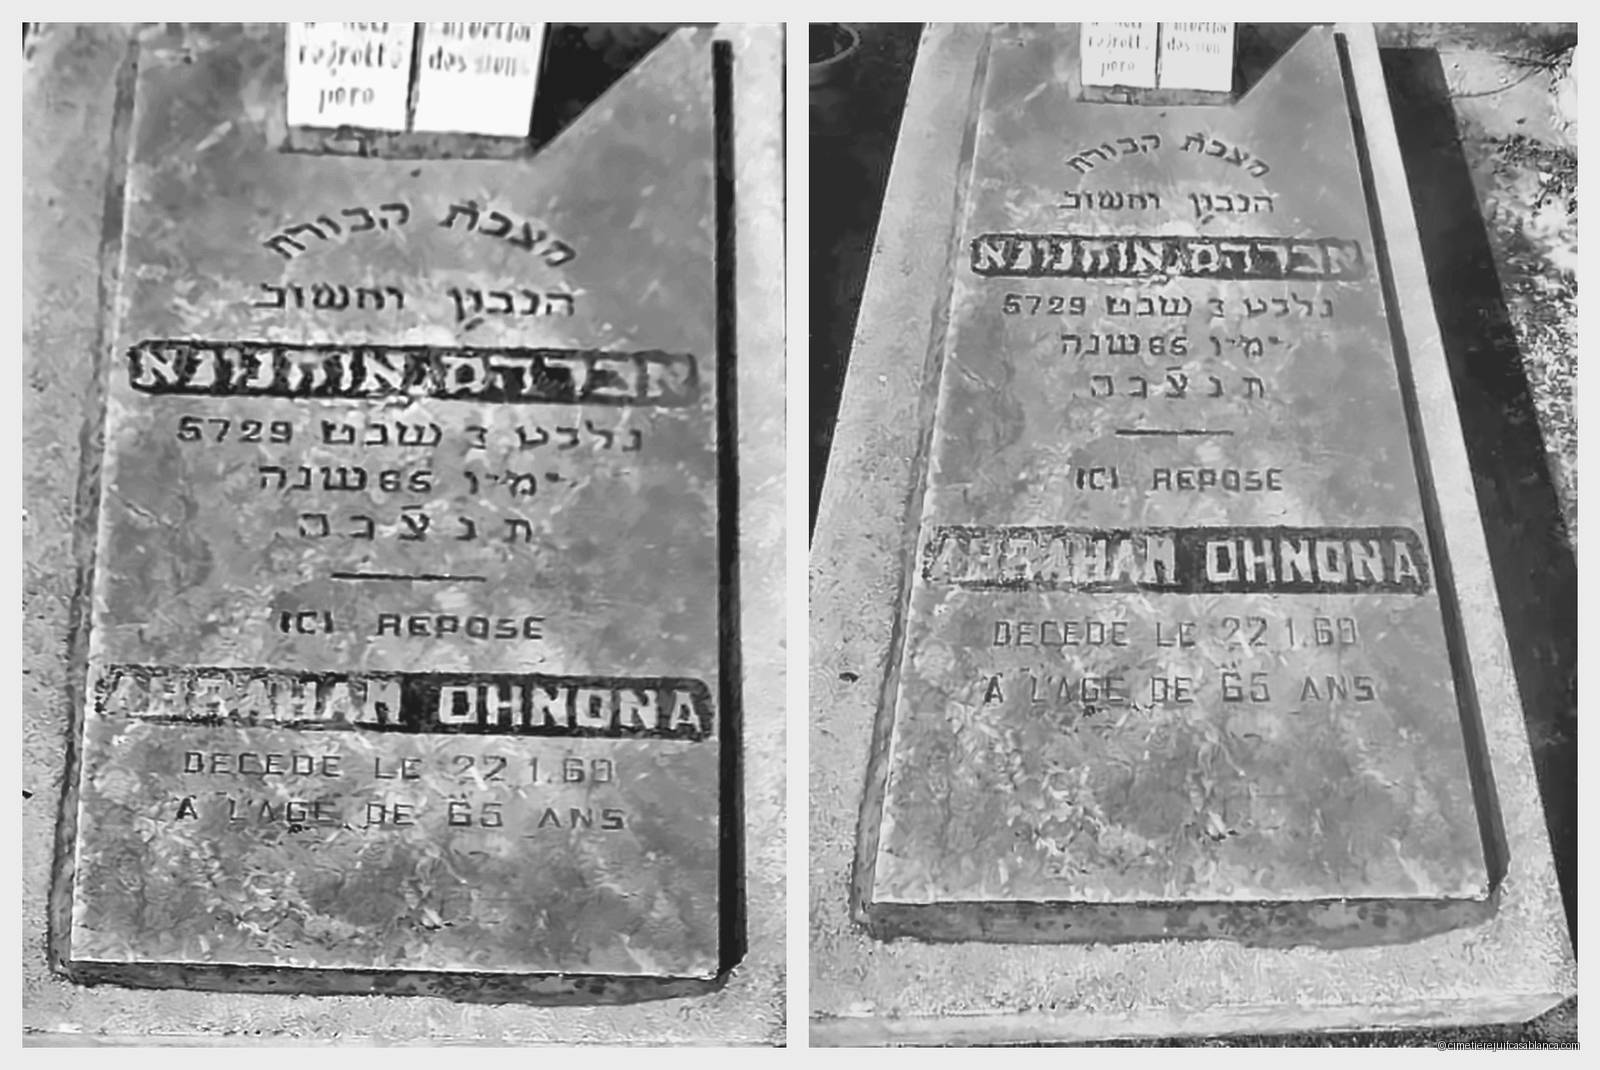 regrette
pero
des siens
מצבת קבורת
הנבון וחשוב
אברהם אוחנונא
נלבע ג שבט 5729
ימיו 65 שנה
ת נ צ ב ה
ICI REPOSE
ABRAHAM OHNONA
DECEDE LE 22.1.69
A L'AGE DE 65 ANS
pero
מצבת קבורת
הנבון וחשוב
אברהם אוחנונא
נלבע ג שבט 5729
ימיו 65 שנה
ת נ צ ב ה
ICI REPOSE
ABRAHAM OHNONA
DECEDE LE 22.1.69
A L'AGE DE 65 ANS
©cimetierejuifcasablanca.com